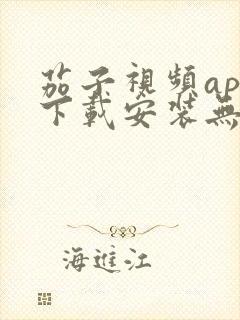 茄子視頻ap
下載安裝無
海進江